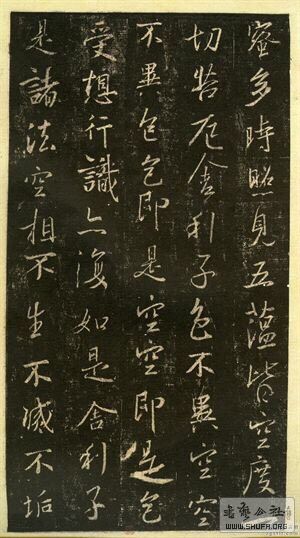 蜜多時照見五蘊皆空度
切苦厄舍利子色不異空空
不異色色即是空空即是色
受想行識亦復如是舍利子
是諸法空相不生不滅不垢
书艺公社
WWW.SHUFA.ORG